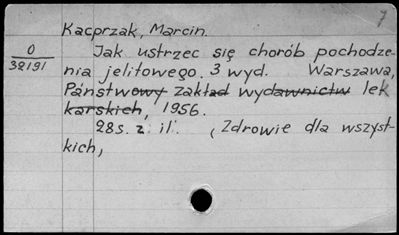 7
Kacprzak, Marcin.
0
32191
Jak ustrzec się chorób pochodze-
nia jelitowego. 3 wyd. Warszawa,
Państwowy zakład wydawnictw lek
karskich, 1956.
28s. z il. (Zdrowie dla wszyst-
kich,